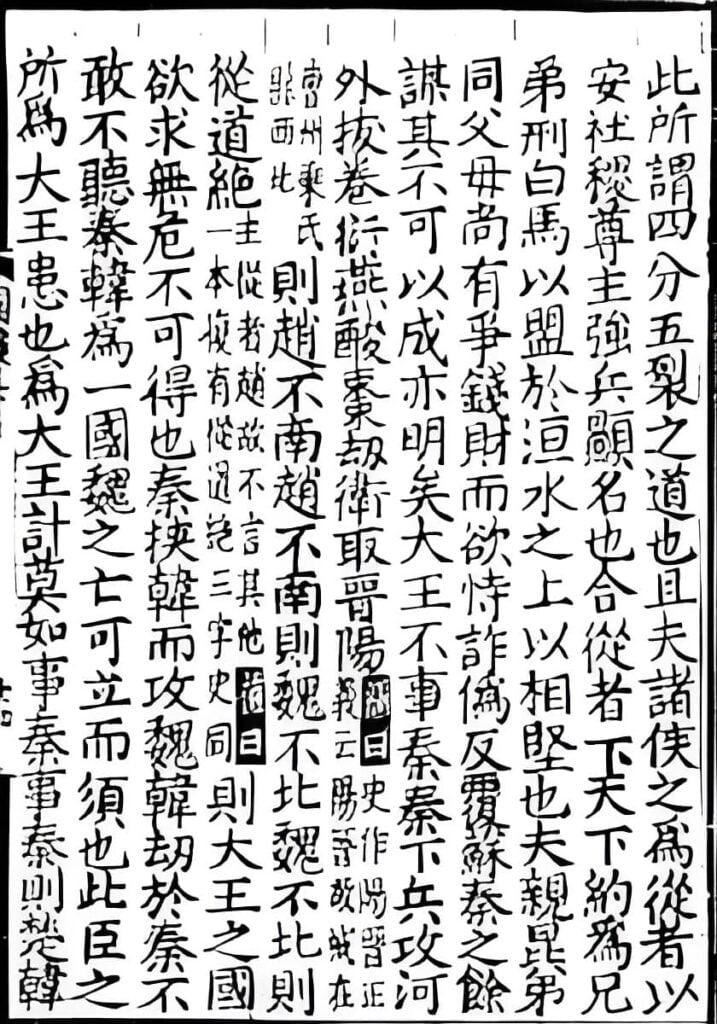 此所謂四分五裂之道也且夫諸侯之爲從者以
安社稷尊主強兵顯名也合從者下天下納爲兄
弟刑白馬以盟於洹水之上以相堅也夫親昆弟
同父母尚有爭錢財而欲恃詐僞反覆蘇秦之餘
謀其不可以成亦明矣大王不事秦秦下兵攻河
外拔卷衍燕酸棗劫衛取晉陽曰史作陽晉正義云陽晉故城在
曹州乘氏縣西北則趙不南趙不南則魏不北魏不北則
從道絕主從者趙故不言其他曰一本復有從道絕三字史同則大王之國
欲求無危不可得也秦挾韓而攻魏韓劫於秦不
敢不聽秦韓爲一國魏之亡可立而須也此臣之
所爲大王患也爲大王計莫如事秦事秦則楚韓